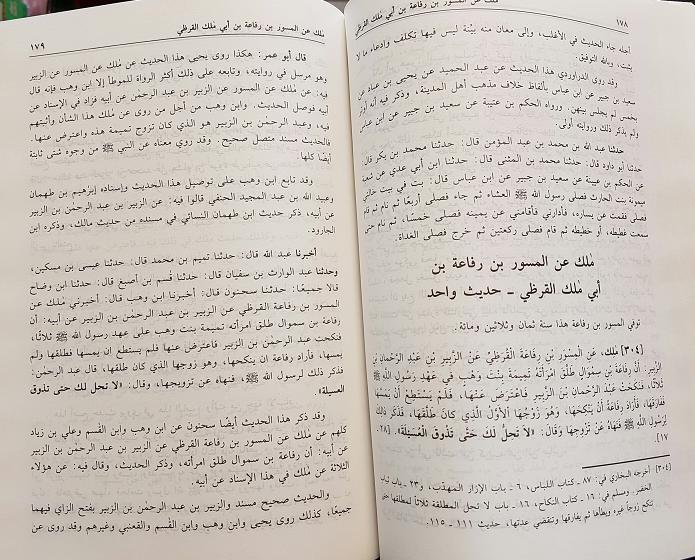 ١٧٨
ملك عن المسور بن رفاعة بن أبي ملك القرظي
أجله جاء الحديث في الأغلب، وإلى معان منه بيّنة ليس فيها تكلف وادعاء ما لا
يثبت، وبالله التوفيق.
وقد روى الدراوردي هذا الحديث عن عبد الحميد عن يحيى بن عباد عن
سعيد بن جبير عن ابن عباس بألفاظ خلاف مذهب أهل المدينة، وذكر فيه أنه أوتر
بخمس لم يجلس بينهن. ورواه الحكم بن عتيبة عن سعيد بن جبير عن ابن عباس
ولم يذكر ذلك وروايته أولى.
حدثنا عبد الله بن محمد بن عبد المؤمن قال: حدثنا محمد بن بكر قال:
حدثنا أبو داود قال: حدثنا محمد بن المثنى قال: حدثنا ابن أبي عدي عن شعبة
عن الحكم بن عيينة عن سعيد بن جبير عن ابن عباس قال: بت في بيت خالتي
ميمونة بنت الحارث فصلى رسول الله ﷺ العشاء ثم جاء فصلى أربعًا ثم نام ثم قام
فصلى فقمت عن يساره، فأدارني فأقامني عن يمينه فصلى خمسًا، ثم نام حتى
سمعت غطيطه، أو خطيطه ثم قام فصلى ركعتين ثم خرج فصلى الغداة.
مُلك عن المسور بن رفاعة بن
أبي مُلك القرظي ـ حديث واحد
توفي المسور بن رفاعة هذا سنة ثمان وثلاثين ومائة.
[٣٠٤] مُلك، عَنِ المِسْوَرِ بْنِ رِفَاعَةَ الْقُرَظِيِّ عَنْ الزَّبِيرِ بْنِ عَبْدِ الرَّحْمَانِ بْنِ
الزَّبِيرِ: أَنَّ رِفَاعَةَ بْنَ سِمْوَالٍ طَلَّقَ امْرَأَتَهُ تَمِيمَةَ بِنْتَ وَهْبٍ فِي عَهْدِ رَسُولِ اللَّهِ ﷺ
ثَلَاثًا، فَنَكَحَتْ عَبْدَ الرَّحْمَانِ بْنَ الزَّبِيرِ فَاعْتَرَضَ عَنْهَا، فَلَمْ يَسْتَطِعْ أَنْ يَمَسَّهَا
فَفَارَقَهَا، فَأَرَادَ رِفَاعَةُ أَنْ يَنْكِحَهَا، وَهُوَ زَوْجُهَا الْأَوَّلُ الَّذِي كَانَ طَلَّقَهَا، فَذَكَرَ ذَلِكَ
لِرَسُولِ اللَّهِ ﷺ فَنَهَاهُ عَنْ تَزَوُّجِهَا وَقَالَ: «لَا تَحِلُّ لَكَ حَتَّى تَذُوقَ الْعُسَيْلَةَ». [٢٨،
١٧].
[٣٠٤] أخرجه البخاري في: ٨٧ ـ كتاب اللباس، ٦ ـ باب الإزار المهدّب، و٢٣ ـ باب ثياب
الخضر. ومسلم في: ١٦ ـ كتاب النكاح، ١٦ ـ باب لا تحل المطلقة ثلاثاً لمطلقها حتى
تنكح زوجاً غيره ويطأها ثم يفارقها وتنقضي عدتها، حديث ١١١ ـ ١١٥.
مُلك عن المسور بن رفاعة بن أبي مُلك القرظي
١٧٩
قال أبو عمر: هكذا روى يحيى هذا الحديث عن مُلك عن المسور عن الزبير
وهو مرسل في روايته، وتابعه على ذلك أكثر الرواة للموطأ إلا ابن وهب فإنه قال
فيه: عن مُلك عن المسور عن الزبير بن عبد الرحمن عن أبيه فزاد في الإسناد عن
أبيه فوصل الحديث. وابن وهب من أجل من روى عن مُلك هذا الشأن وأثبتهم
فيه، وعبد الرحمن بن الزبير هو الذي كان تزوج تميمة هذه واعترض عنها.
فالحديث مسند متصل صحيح. وقد روي معناه عن النبي ﷺ من وجوه شتى ثابتة
أيضًا كلها.
وقد تابع ابن وهب على توصيل هذا الحديث وإسناده إبرٰهيم بن طهمان
وعبيد الله بن عبد المجيد الحنفي قالوا فيه: عن الزبير بن عبد الرحمٰن بن الزبير
عن أبيه، ذكر حديث ابن طهمان النسائي في مسنده من حديث مالك، وذكره ابن
الجارود.
أخبرنا عبد الله قال: حدثنا تميم بن محمد قال: حدثنا عيسى بن مسكين،
وحدثنا عبد الوارث بن سفيان قال: حدثنا قٰسم بن أصبغ قال: حدثنا ابن وضاح
قالا جميعًا: حدثنا سحنون قال: أخبرنا ابن وهب قال: أخبرني مُلك عن
المسور بن رفاعة القرظي عن الزبير بن عبد الرحمٰن بن الزبير عن أبيه: أن
رفاعة بن سموال طلق امرأته تميمة بنت وهب على عهد رسول الله ﷺ ثلاثًا،
فنكحت عبد الرحمٰن بن الزبير فاعترض عنها فلم يستطع إن يمسها فطلقها ولم
يمسها، فأراد رفاعة إن ينكحها، وهو زوجها الذي كان طلقها، قال عبد الرحمٰن:
فذكر ذلك لرسول الله ﷺ، فنهاه عن تزويجها، وقال: «لا تحل لك حتى تذوق
العسيلة».
وقد ذكر هذا الحديث أيضًا سحنون عن ابن وهب وابن القٰسم وعلي بن زياد
كلهم عن مُلك عن المسور بن رفاعة القرظي عن الزبير بن عبد الرحمٰن بن الزبير
عن أبيه: أن رفاعة بن سموال طلق امرأته، وذكر الحديث، وقال فيه: عن هؤلاء
الثلاثة عن مُلك في هذا الإسناد عن أبيه.
والحديث صحيح مسند والزبير بن عبد الرحمٰن بن الزبير بفتح الزاي فيهما
جميعًا، كذلك روى يحيى وابن وهب وابن القٰسم والقعنبي وغيرهم وقد روى عن